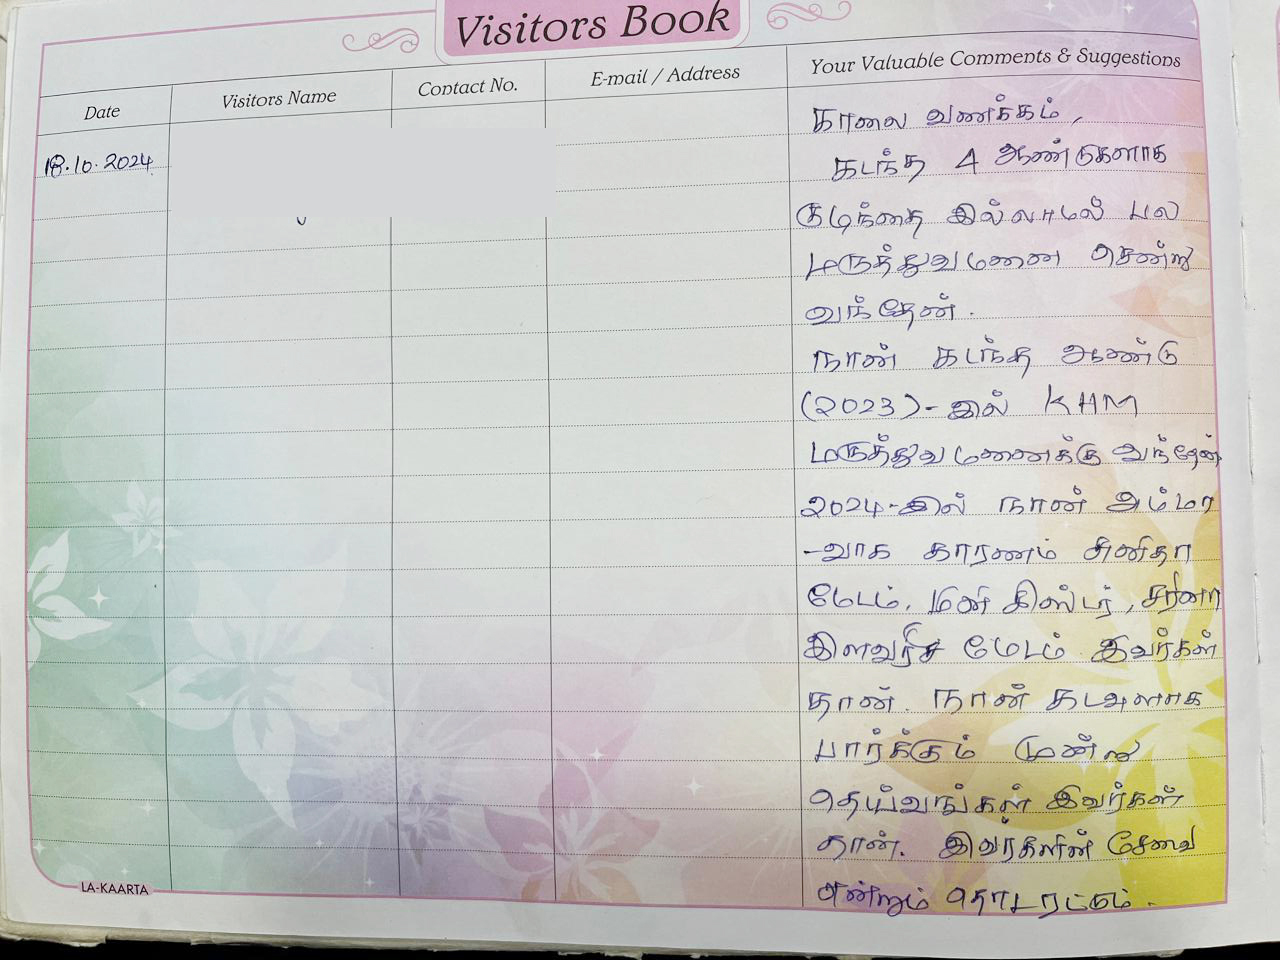 Visitors Book
Date
Visitors Name
Contact No.
E-mail / Address
Your Valuable Comments & Suggestions
18.10.2024
காலை வணக்கம்,
கடந்த 4 ஆண்டுகளாக
குழந்தை இல்லாமல் பல
மருத்துவமனை சென்று
வந்தேன்.
நான் கடந்த ஆண்டு
(2023)-இல் KHM
மருத்துவமனைக்கு வந்தேன்
2024-இல் நான் அம்மா
-வாக காரணம்
மேடம்,
மேடம் இவர்கள்
தான். நான் கடவுளாக
பார்க்கும் மூன்று
தெய்வங்கள் இவர்கள்
தான். இவர்களின் சேவை
என்றும் தொடரட்டும்.
LA-KAARTA